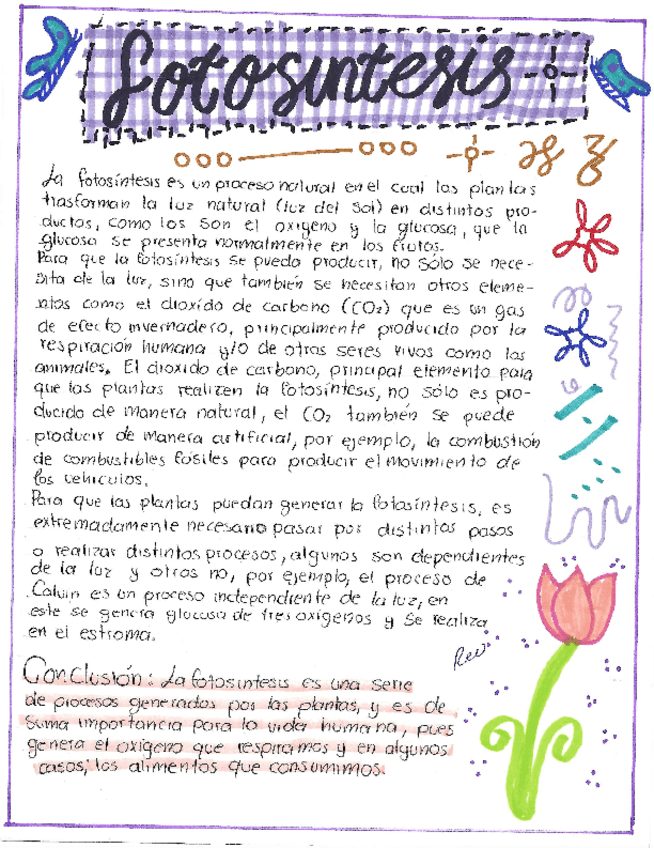 fotosintesis
La fotosíntesis es un proceso natural en el cual las plantas
trasforman la luz natural (luz del Sol) en distintos pro-
ductos, como los son el oxígeno y la glucosa, que la
glucosa se presenta normalmente en los frutos.
Para que la fotosíntesis se pueda producir, no sólo se nece-
sita de la luz, sino que también se necesitan otros eleme-
ntos como el dioxido de carbono (CO₂) que es un gas
de efecto invernadero, principalmente producido por la
respiración humana y/o de otros seres vivos como los
animales. El dioxido de carbono, principal elemento para
que las plantas realizen la fotosíntesis, no sólo es pro-
ducido de manera natural, el CO₂ también se puede
producir de manera artificial, por ejemplo, la combustión
de combustibles fósiles para producir el movimiento de
los vehiculos.
Para que las plantas puedan generar la fotosíntesis, es
extremadamente necesario pasar por distintos pasos
o realizar distintos procesos, algunos son dependientes
de la luz y otros no, por ejemplo, el proceso de
Calvin es un proceso independiente de la luz, en
este se genera glucosa de tres oxigenos y se realiza
en el estroma.
Rev.
Conclusión: La fotosintesis es una serie
de procesos generados por las plantas, y es de
suma importancia para la vida humana, pues
genera el oxigeno que respiramos y en algunos
casos, los alimentos que consumimos.